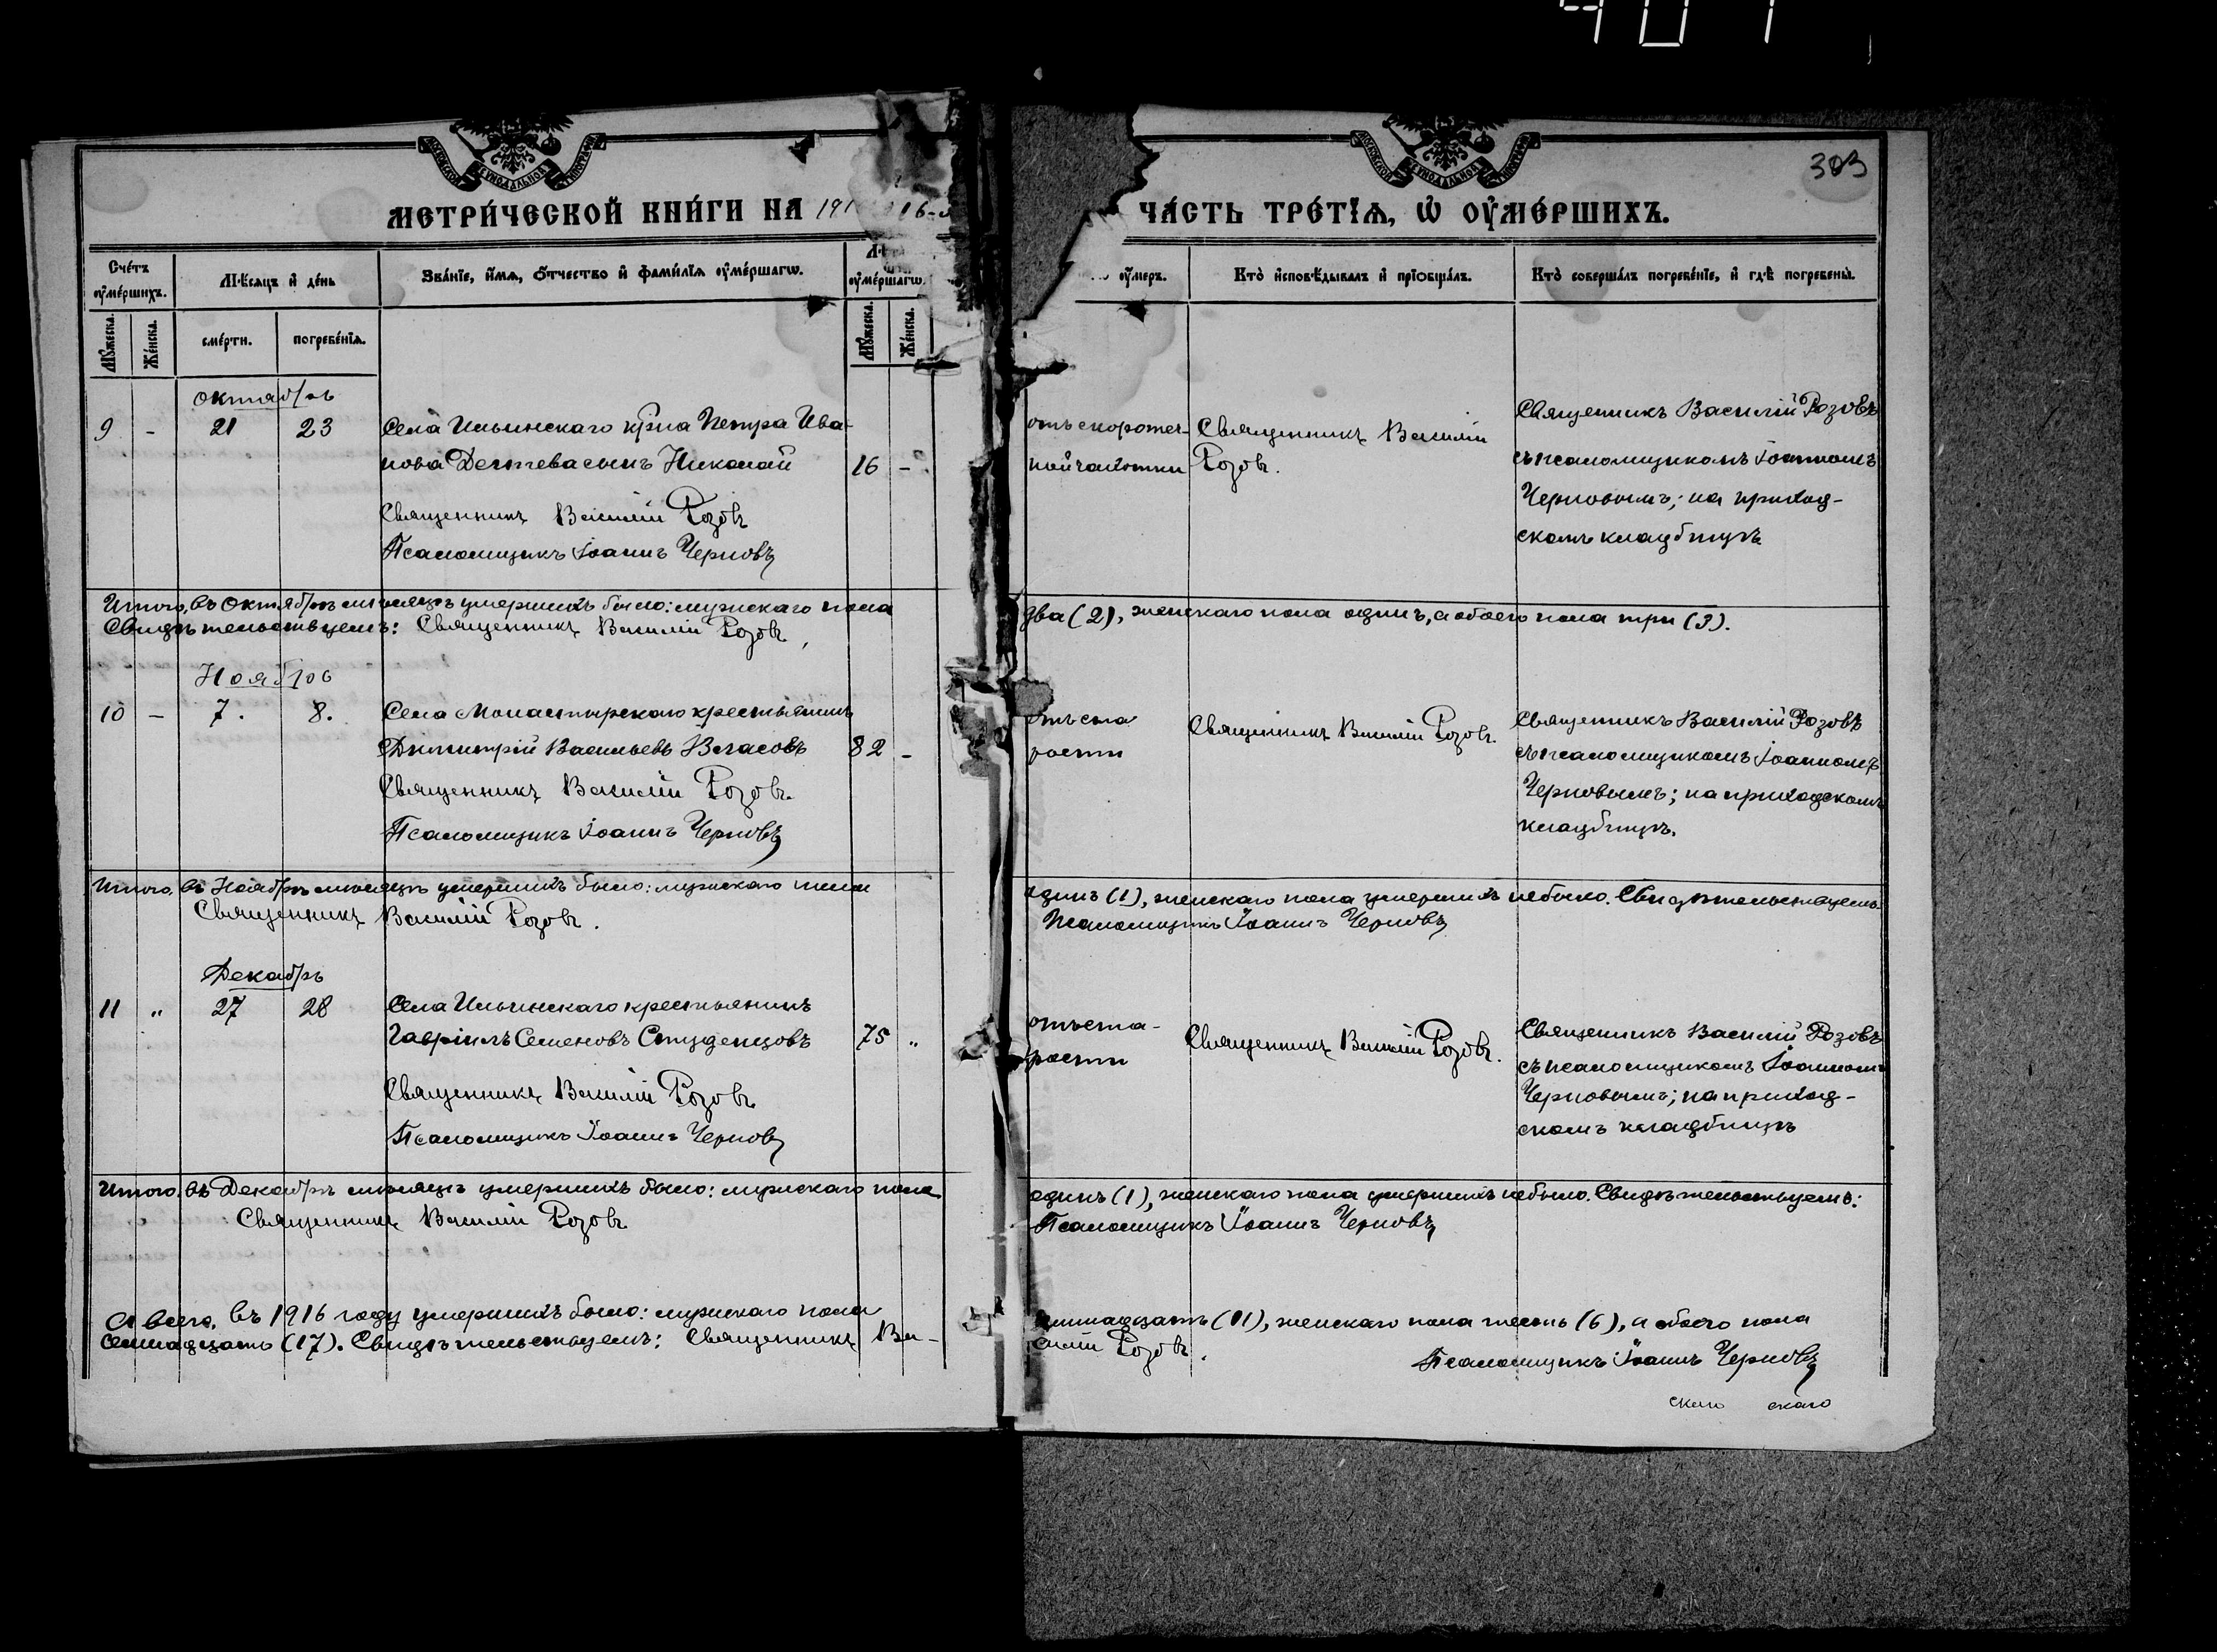 303
МЕТРИ́ЧЕСКОЙ КНИ́ГИ НА 191 16
ЧА́СТЬ ТРЕ́ТІѦ, Ѡ ОУ҆МЕ́РШИХЪ.
Сче́тъ оу҆ме́ршихъ.
Мѣ́сяцъ и҆ де́нь
Зва́нїе, и҆́мѧ, ѻ҆́тчество и҆ фами́лїѧ оу҆ме́ршагѡ.
оу҆ме́ршагѡ.
оу҆́меръ.
Кто̀ и҆сповѣ́дывалъ и҆ прїобща́лъ.
Кто̀ соверша́лъ погребе́нїе, и҆ гдѣ̀ погребены̀.
Мꙋ́жеска.
Же́нска.
сме́рти.
погребе́нїѧ.
Мꙋ́жеска.
Же́нска.
октябрь
9 - 21 23 Села Ильинскаго кр-на Петра Ива-
нова сынъ Николай 16 -
Священникъ Василій Розовъ
Псаломщикъ Іоаннъ Черновъ
отъ скоротеч-
ной чахотки
Священникъ Василій
Розовъ.
Священникъ Василій Розовъ
съ псаломщикомъ Іоанномъ
Черновымъ; на приход-
скомъ кладбищѣ
Итого, въ Октябрѣ мѣсяцѣ умершихъ было: мужскаго пола
два (2), женскаго пола одинъ, а обоего пола три (3).
Свидѣтельствуемъ: Священникъ Василій Розовъ,
Ноябрь
10 - 7. 8. Села Монастырскаго крестьянинъ
Димитрій Васильевъ Власовъ 82 -
Священникъ Василій Розовъ.
Псаломщикъ Іоаннъ Черновъ
отъ ста
рости
Священникъ Василій Розовъ.
Священникъ Василій Розовъ
съ псаломщикомъ Іоанномъ
Черновымъ; на приходскомъ
кладбищѣ.
Итого, въ Ноябрѣ мѣсяцѣ умершихъ было: мужскаго пола
одинъ (1), женскаго пола умершихъ небыло. Свидѣтельствуемъ:
Священникъ Василій Розовъ.
Псаломщикъ Іоаннъ Черновъ
Декабрь
11 " 27 28 Села Ильинскаго крестьянинъ
Гавріилъ Семеновъ Студенцовъ 75 "
Священникъ Василій Розовъ
Псаломщикъ Іоаннъ Черновъ
отъ ста-
рости
Священникъ Василій Розовъ.
Священникъ Василій Розовъ
съ псаломщикомъ Іоанномъ
Черновымъ; на приход-
скомъ кладбищѣ
Итого, въ Декабрѣ мѣсяцѣ умершихъ было: мужскаго пола
одинъ (1), женскаго пола умершихъ небыло. Свидѣтельствуемъ:
Священникъ Василій Розовъ
Псаломщикъ Іоаннъ Черновъ
А всего, въ 1916 году умершихъ было: мужскаго пола
(11), женскаго пола шесть (6), а обоего пола
семнадцать (17). Свидѣтельствуемъ: Священникъ Ва-
силій Розовъ.
Псаломщикъ Іоаннъ Черновъ
скаго скаго